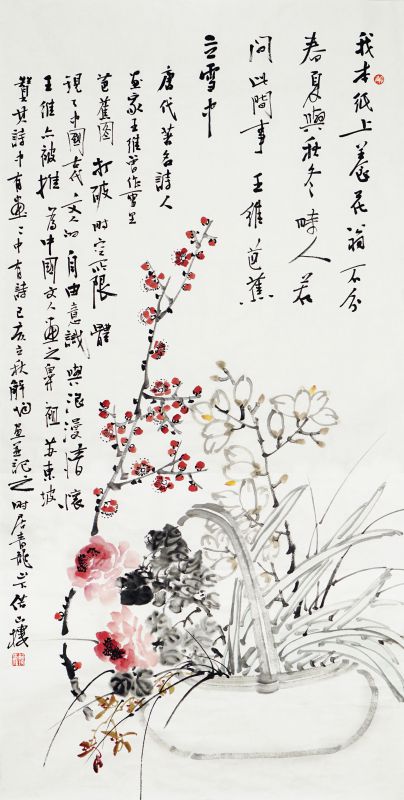 我本纸上養花翁不分
春夏與秋冬時人若
問此間事王維芭蕉
立雪中
唐代著名詩人
画家王維曾作雪里
芭蕉图打破時空所限體
現了中國古代文人的自由意識與浪漫情懷
王維亦被推為中國文人画之鼻祖苏東坡
贊其詩中有画画中有詩己亥立秋解画并記之時居青龍山下借山